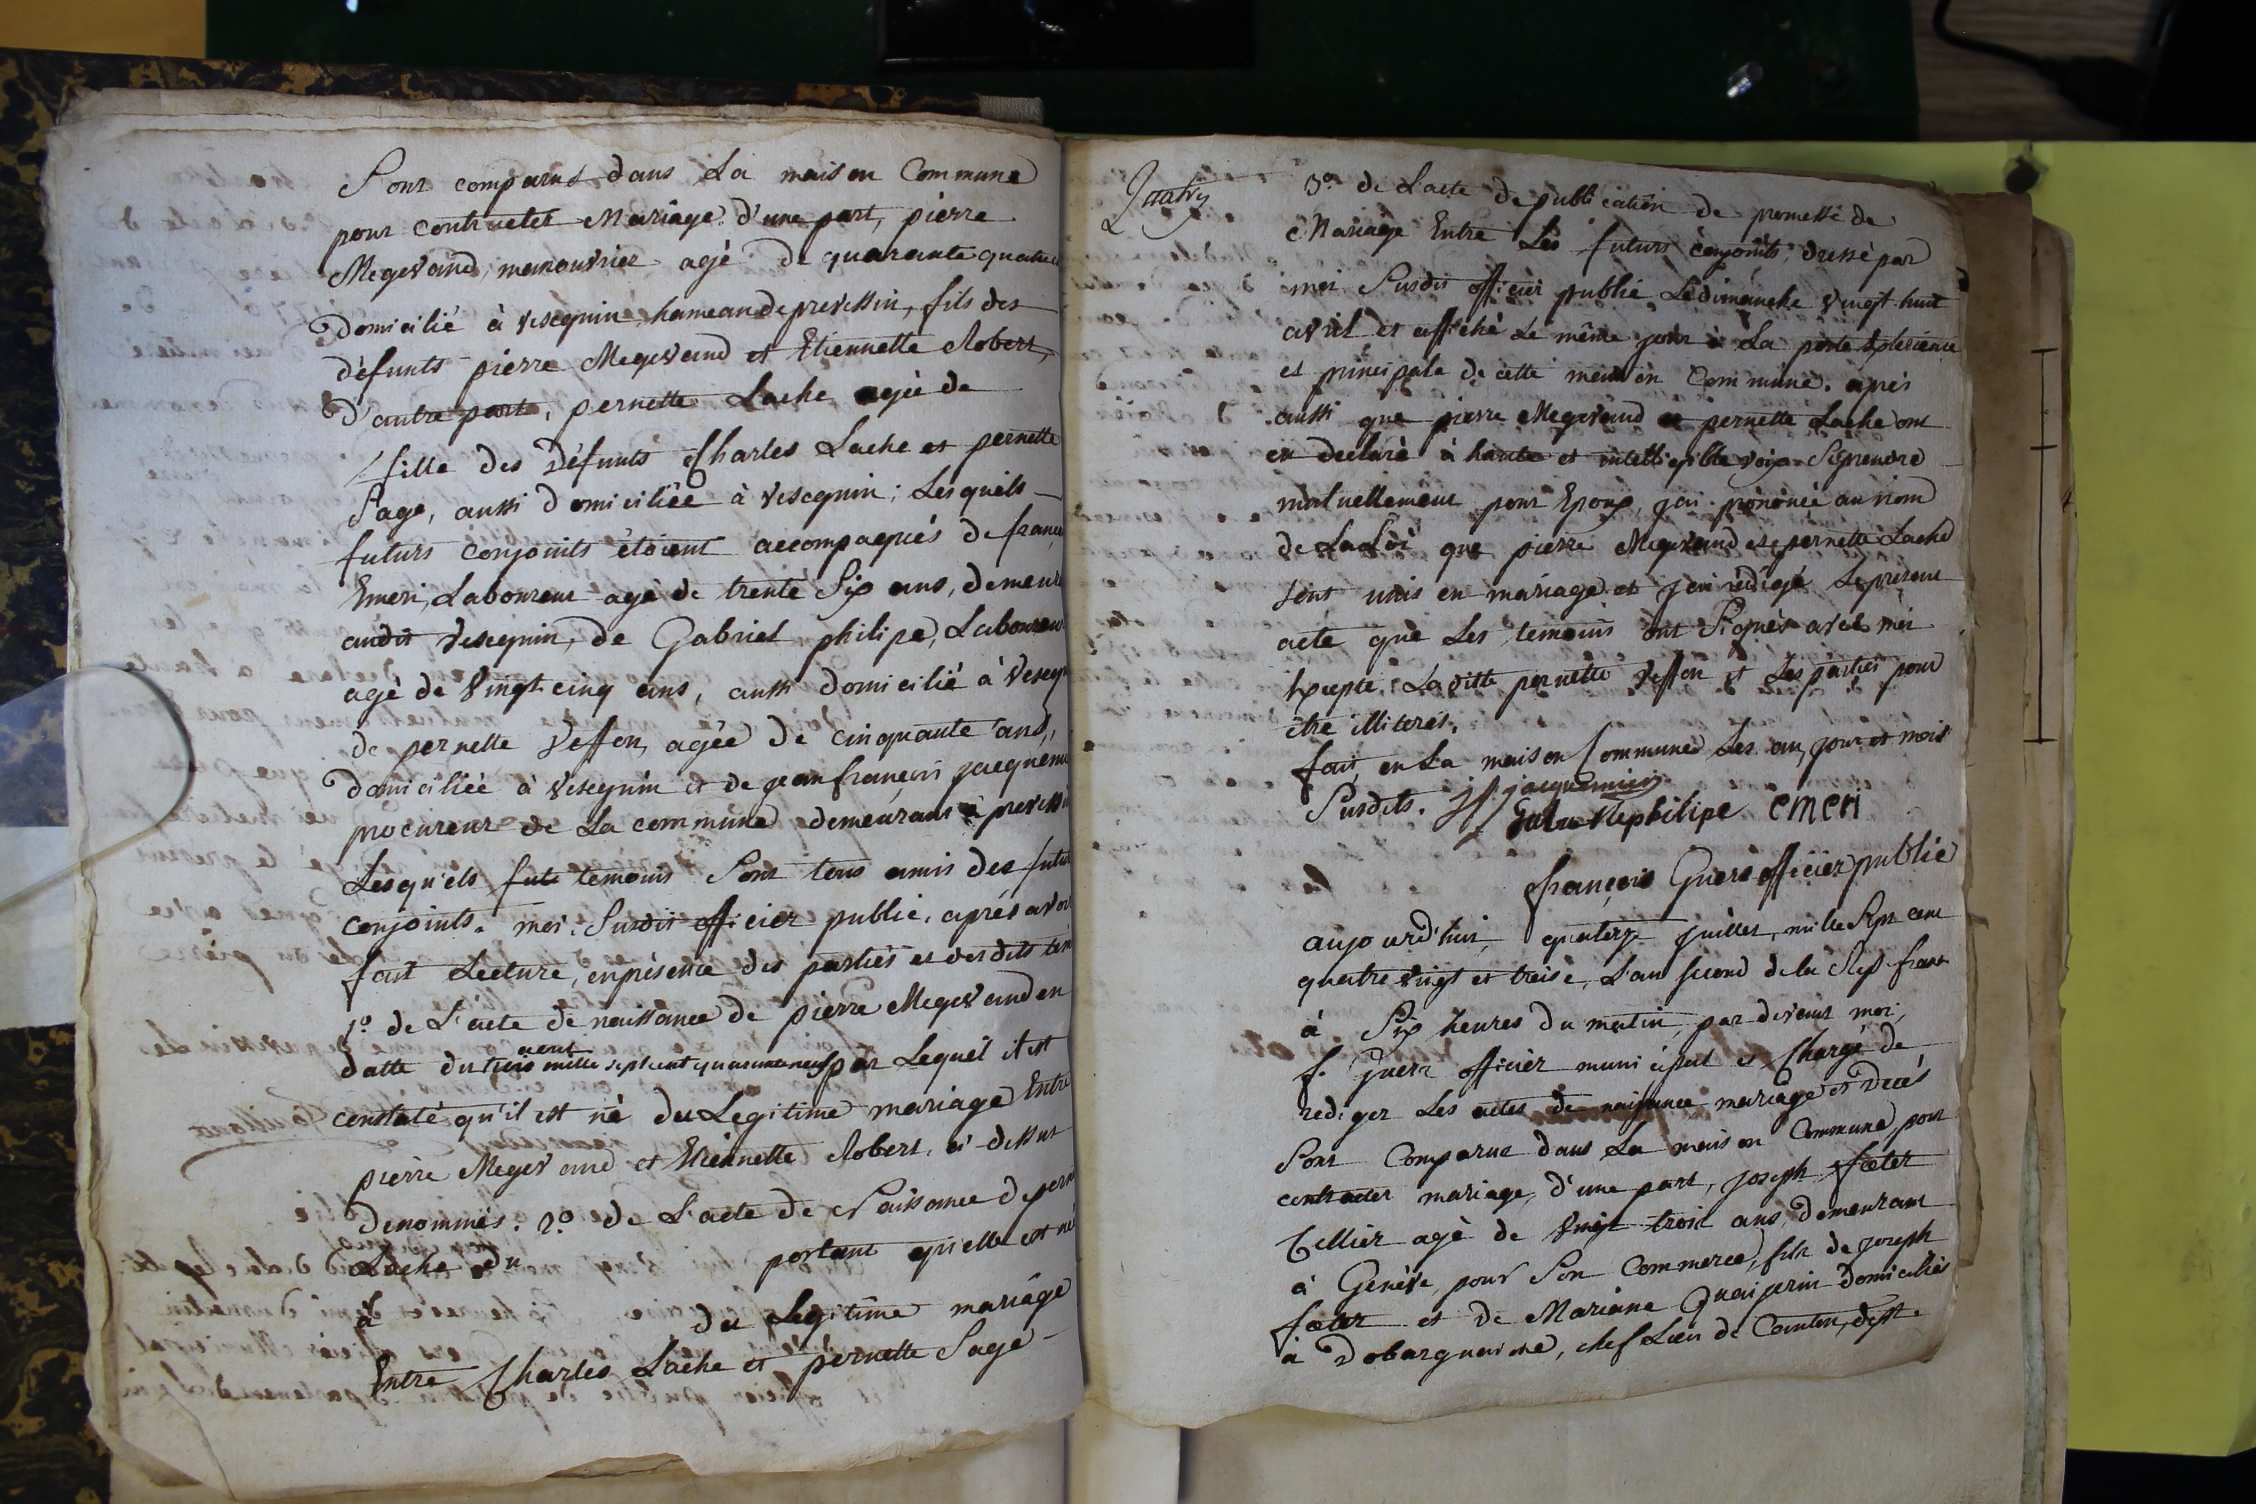 Sont comparus dans La maison Commune
pour contracter Mariage d'une part, pierre
Megevand, manouvrier agé de quarante quatre
domicilié à vesegnin hameau de prevessin, fils des
défunts pierre Megevand et Etiennette Robert,
d'autre part, pernette Lache agée de
fille des Défunts Charles Lache et pernette
Sage, aussi domiciliée à vesegnin; Lesquels
futurs conjoints étoient accompagnés de françois
Emeri, Laboureur agé de trente Six ans, demeurant
audit vesegnin, de Gabriel philipe, Laboureur
agé de vingt cinq ans, aussi domicilié à vesegnin
de pernette veffon, agée de cinquante ans,
domiciliée à vesegnin et de jean françois jacquemier
procureur de La commune demeurant à prevessin
Lesquels fut temoins Sont tous amis des futurs
conjoints. moi Susdit officier public, aprés avoir
fait Lecture, en présence des parties et desdits tem
1º. de L'acte de naissance de pierre Megevand en
datte du trois aout mille sept cent quarante neuf par Lequel il est
constaté qu'il est né du Legitime mariage Entre
pierre Megevand et Etiennette Robert, ci dessus
denommés. 2º. de L'acte de Naissance de pernette
Lache du portant qu'elle est née
à du Legitime mariage
Entre Charles Lache et pernette Sage
3º. de L'acte de publication de promesse de
Mariage Entre Les futurs conjoints, dressé par
moi Susdit officier public Le dimanche vingt huit
avril et affiché Le même jour à La porte
et principale de cette maison Commune. aprés
aussi que pierre Megevand et pernette Lache ont
eu declaré à haute et intelligible voix Se prendre
mutuellement pour Epoux, j'ai prononcé au nom
de La Loi que pierre Megevand et pernette Lache
sont unis en mariage et j'ai rédigé Le présent
acte que Les temoins ont Signés avec moi
Excepté Ladite pernette veffon et Les parties pour
être illiterés.
fait en La maison Commune Les an, jour et mois
Susdits. jf jacquemier
Gabriel philipe emeri
françois Guers officier public
aujourd'hui, quatorze juillet, mille Sept cent
quatre vingt et treise, L'an second de la Rep. franc
à Six heures du matin, par devant moi,
f. Guers officier municipal et Chargé de
rediger Les actes de naissance mariage et decés
Sont Comparus dans La maison Commune, pour
contracter mariage, d'une part, joseph foeter
Tellier agé de vingt trois ans, demeurant
à Genève, pour Son Commerce, fils de joseph
foeter et de Mariane Quaiserin domiciliés
à Dobarguerine, chef Lieu de Canton, dist.